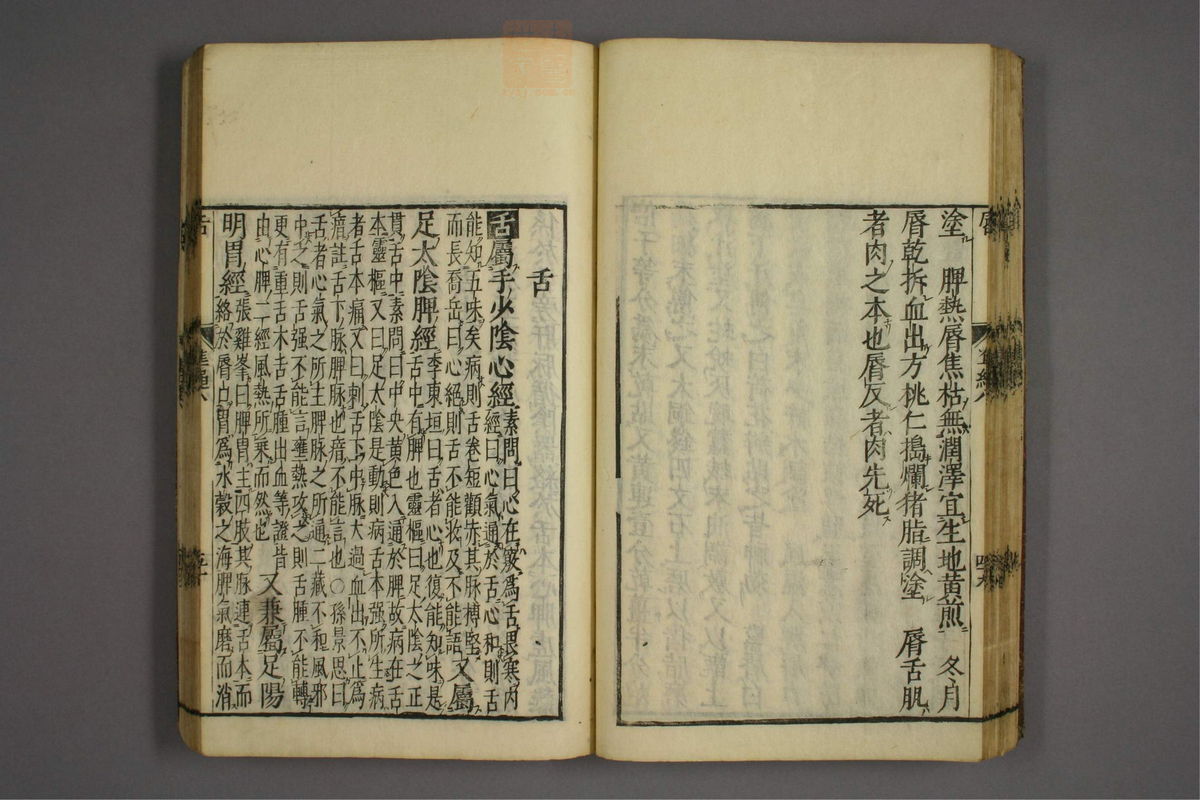 塗 脾熱脣焦枯無潤澤宜生地黄煎 冬月
脣乾拆血出方桃仁搗爛猪脂調塗 脣舌肌
者肉之本也脣反者肉先死
舌
舌屬手少陰心經
素問曰心在竅爲舌畏寒内
經曰心氣通於舌心和則舌
能知五味矣病則舌卷短顴赤其脉搏堅
而長喬岳曰心絕則舌不能收及不能語
又屬
足太陰脾經
李東垣曰舌者心也復能知味是
舌中有脾也靈樞曰足太陰之正
貫舌中素問曰中央黄色入通於脾故病在舌
本靈樞又曰足太陰是動則病舌本强所生病
者舌本痛又曰刺舌下中脉大過血出不止爲
瘖註舌下脉脾脉也瘖不能言也〇孫景思曰
舌者心氣之所主脾脉之所通二藏不和風邪
中之則舌强不能言壅熱攻之則舌腫不能轉
更有重舌木舌舌腫出血等證皆
由心脾二經風熱所乘而然也
又兼屬足陽
明胃經
張雞峯曰脾胃主四肢其脉連舌本而
絡於脣口胃爲水穀之海脾氣磨而消
脣
舌